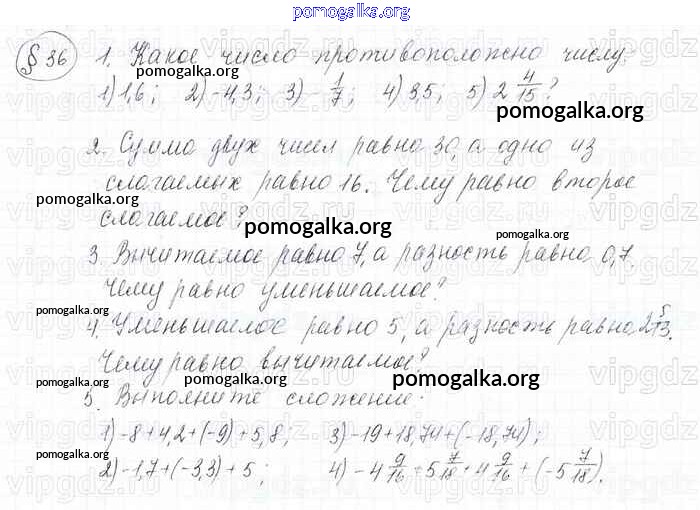 pomogalka.org
§ 36
1. Какое число противоположно числу:
1) 1,6; 2) -4,3; 3) -1/7; 4) 3,5; 5) 2 4/15?
2. Сумма двух чисел равна 30, а одно из
слагаемых равно 16. Чему равно второе
слагаемое?
3. Вычитаемое равно 7, а разность равна 0,7.
Чему равно уменьшаемое?
4. Уменьшаемое равно 5, а разность равна 2 5/13.
Чему равно вычитаемое?
5. Выполните сложение:
1) -8+4,2+(-9)+5,8; 3) -19+18,74+(-18,74);
2) -1,7+(-3,3)+5; 4) -4 9/16 + 5 7/18 + 4 9/16 + (-5 7/18).
pomogalka.org
pomogalka.org
pomogalka.org
pomogalka.org
pomogalka.org
pomogalka.org
pomogalka.org
pomogalka.org
pomogalka.org